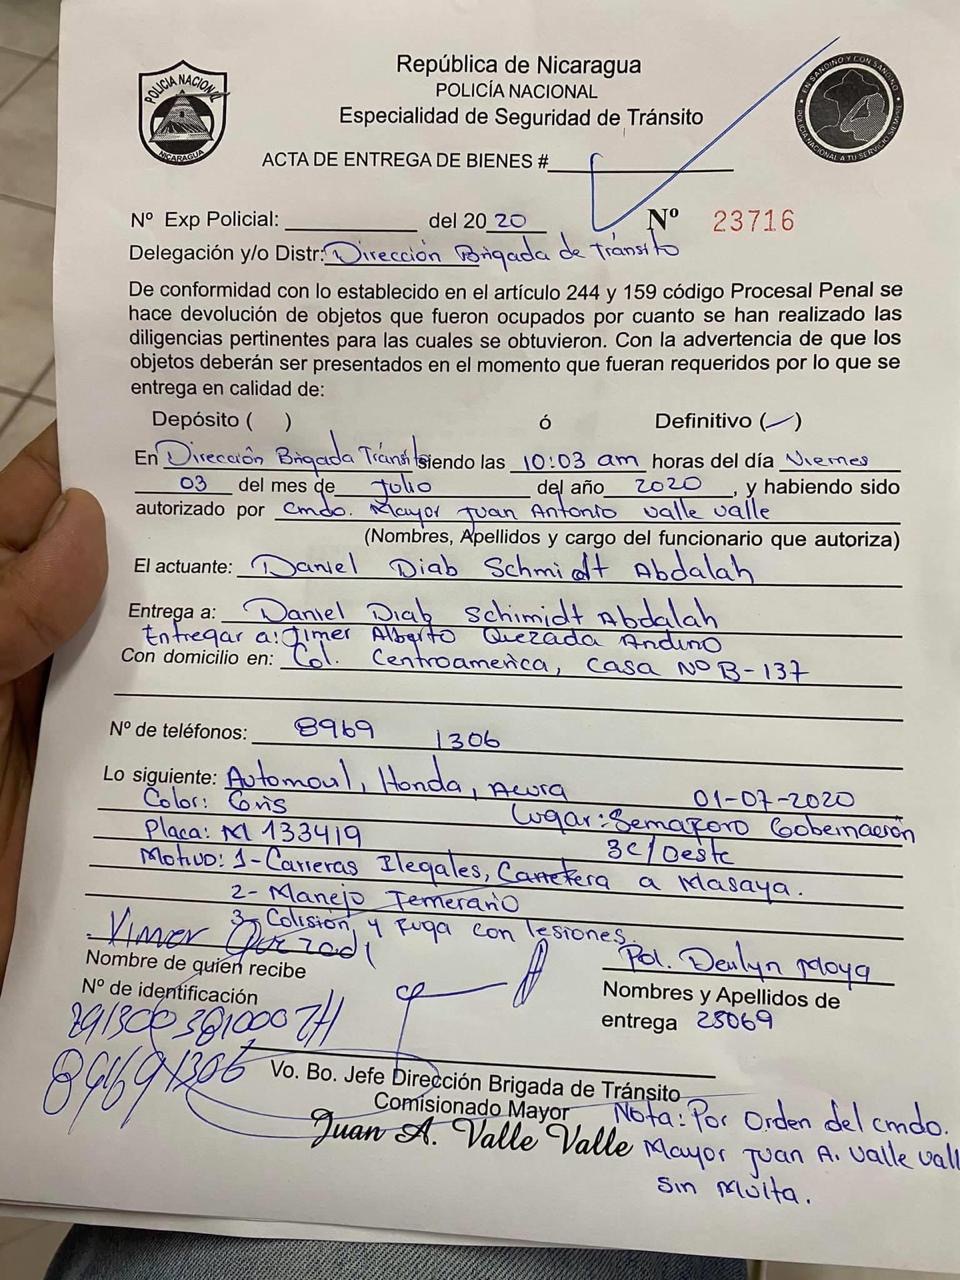 POLICIA NACIONAL
NICARAGUA
EN SANDINO Y CON SANDINO
POLICIA NACIONAL A TU SERVICIO SIEMPRE
República de Nicaragua
POLICÍA NACIONAL
Especialidad de Seguridad de Tránsito
ACTA DE ENTREGA DE BIENES #
Nº Exp Policial: del 20 20 Nº 23716
Delegación y/o Distr: Dirección Brigada de Tránsito
De conformidad con lo establecido en el artículo 244 y 159 código Procesal Penal se
hace devolución de objetos que fueron ocupados por cuanto se han realizado las
diligencias pertinentes para las cuales se obtuvieron. Con la advertencia de que los
objetos deberán ser presentados en el momento que fueran requeridos por lo que se
entrega en calidad de:
Depósito ( ) ó Definitivo (✓)
En Dirección Brigada Tránsito siendo las 10:03 am horas del día Viernes
03 del mes de Julio del año 2020, y habiendo sido
autorizado por Cmdo. Mayor Juan Antonio Valle Valle
(Nombres, Apellidos y cargo del funcionario que autoriza)
El actuante: Daniel Diab Schmidt Abdalah
Entrega a: Daniel Diab Schimidt Abdalah
Entregar a: Jimer Alberto Quezada Andino
Con domicilio en: Col. Centroamerica, Casa Nº B-137
Nº de teléfonos: 8969 1306
Lo siguiente: Automovil, Honda, Acura 01-07-2020
Color: Gris Lugar: Semaforo Gobernación
Placa: M 133419 3c/Oeste
Motivo: 1- Carreras Ilegales, Carretera a Masaya.
2- Manejo Temerario
3- Colisión y Fuga con lesiones.
Yimer Quezada
Pol. Deulyn Moya
Nombre de quien recibe
Nombres y Apellidos de
Nº de identificación
entrega 25069
89691306
Vo. Bo. Jefe Dirección Brigada de Tránsito
Comisionado Mayor
Juan A. Valle Valle
Nota: Por Orden del cmdo.
Mayor Juan A. Valle Vall
Sin Multa.